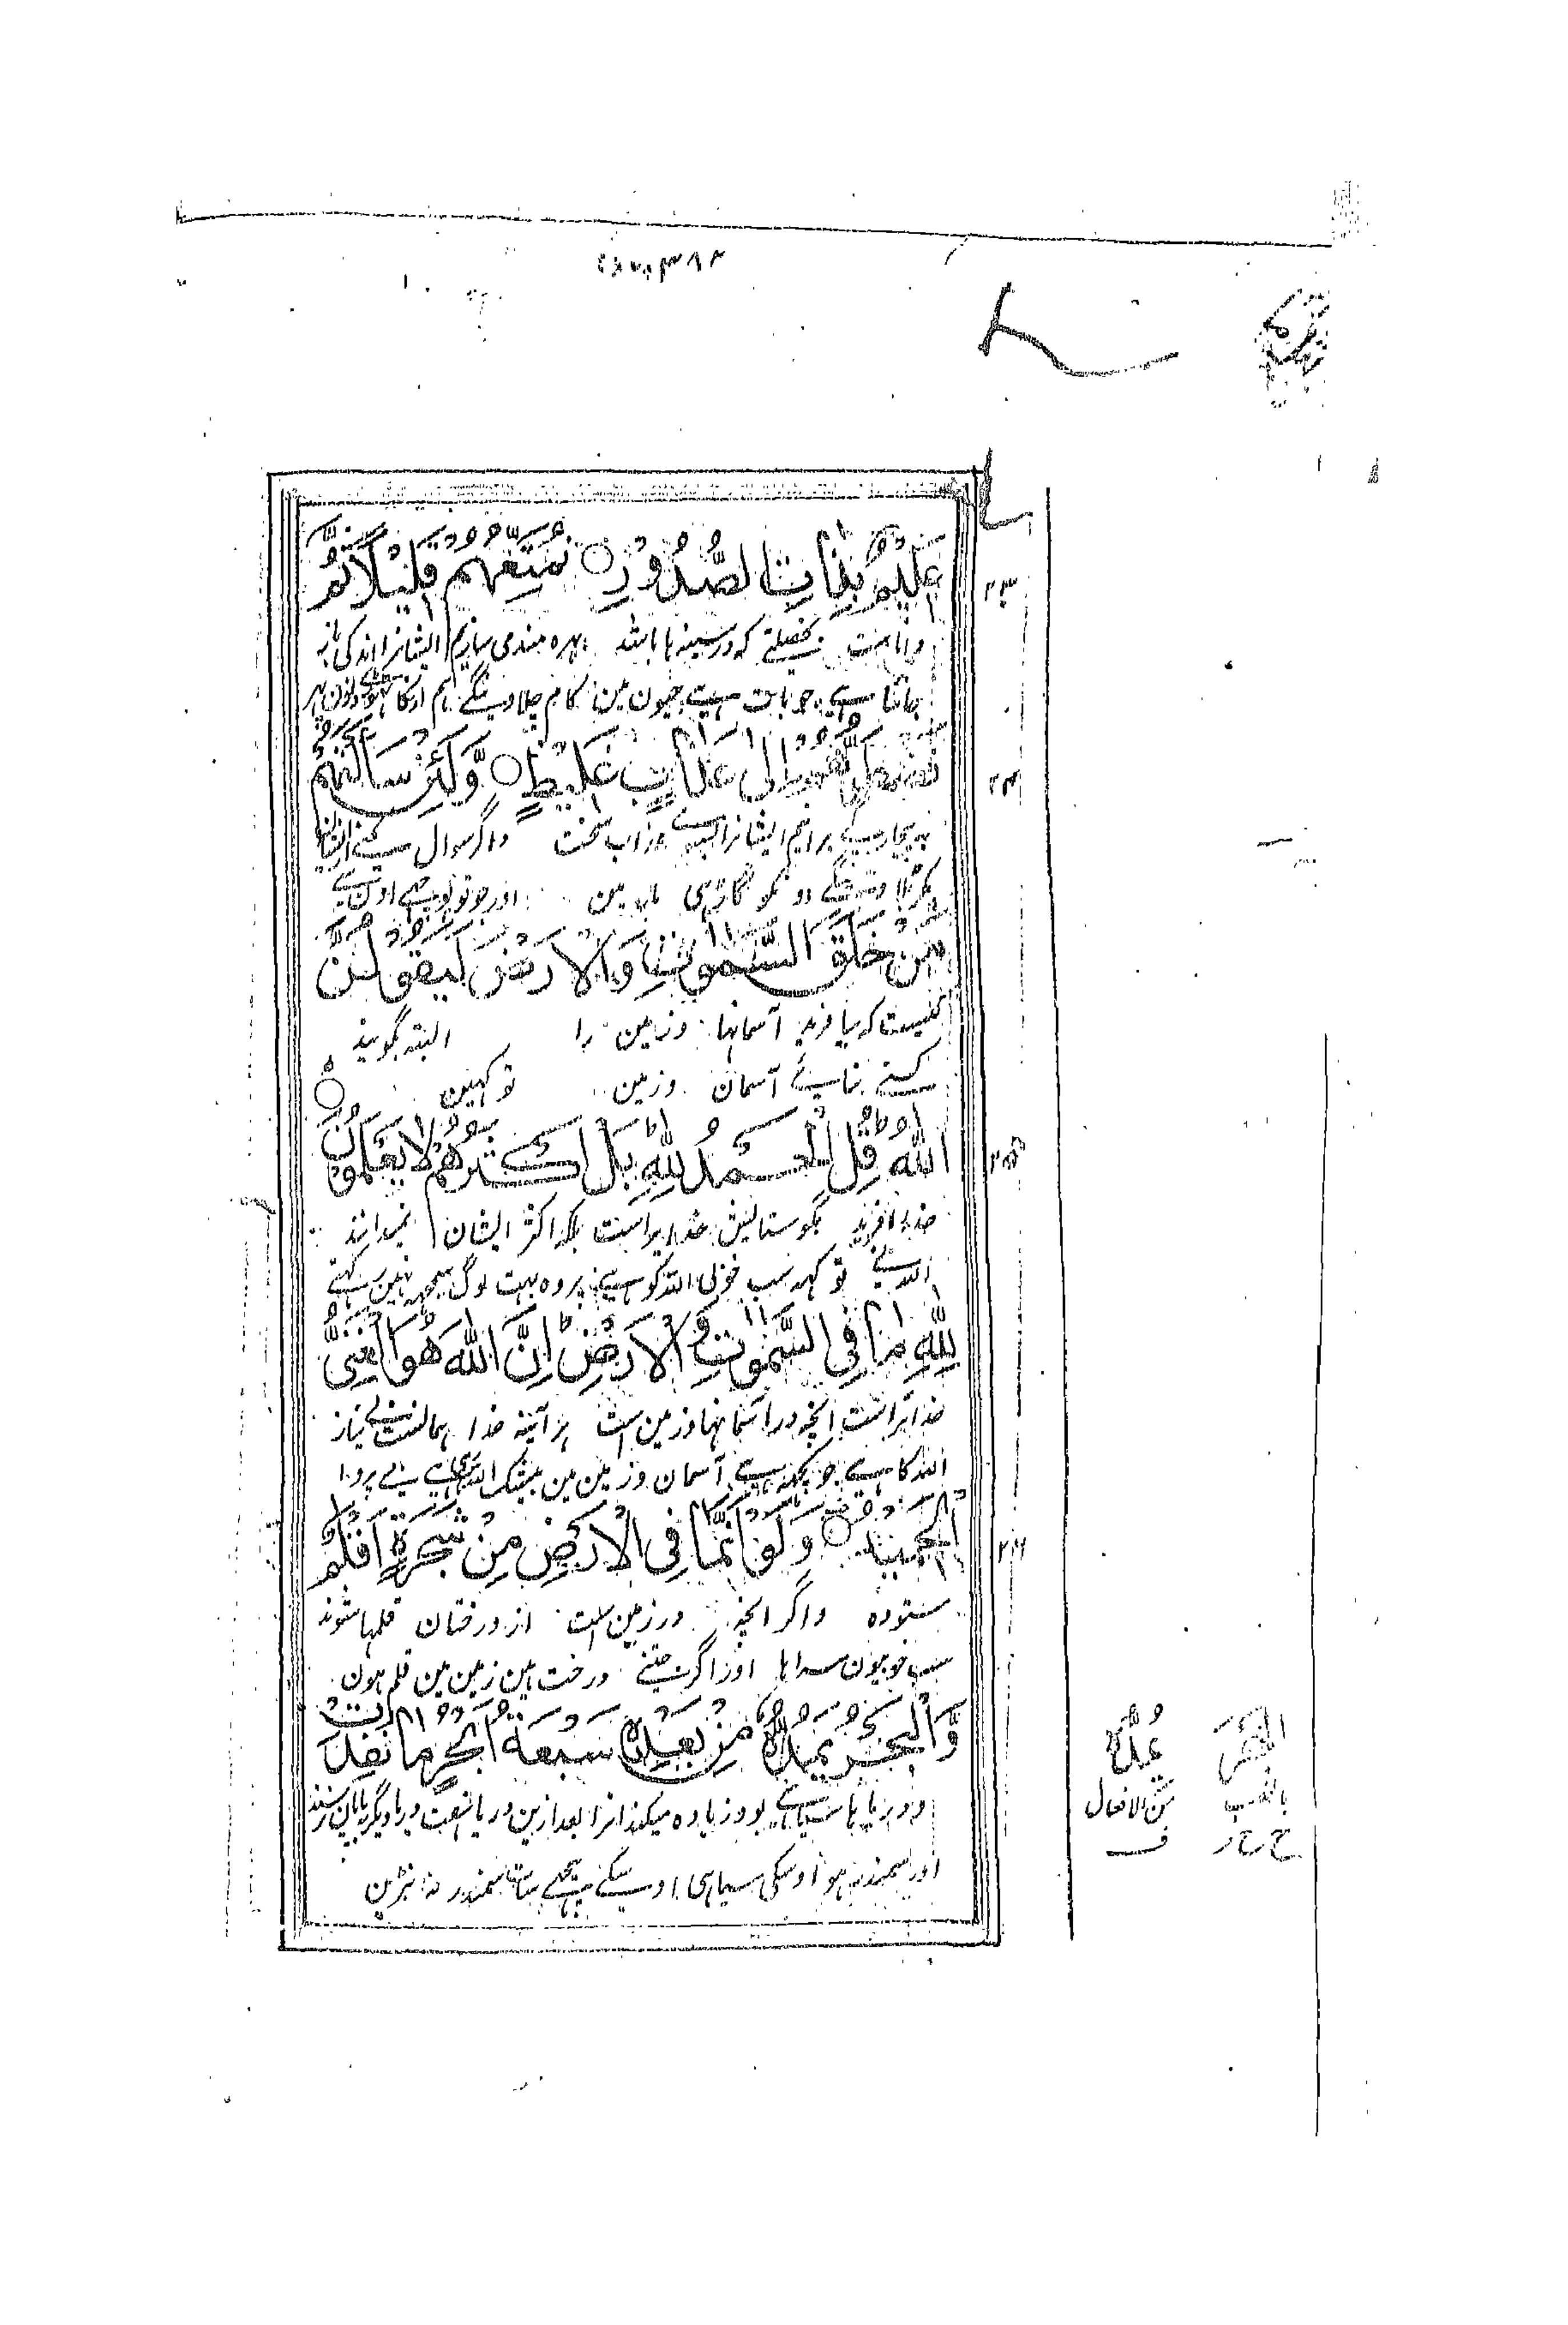 عَلِيْمٌ بِذَاتِ الصُّدُوْرِ ○ نُمَتِّعُهُمْ قَلِيْلًا ثُمَّ
۲۳
داناست بخصلتے که در سینه ها باشد بهره مندمی سازیم ایشانرا اندکی باز
جانتا ہے جو بات ہے جیون مین کام چلا وینگے ہم اونکا تھوڑے دنون پھر
نَضْطَرُّهُمْ اِلٰى عَذَابٍ غَلِيْظٍ ○ وَلَئِنْ سَاَلْتَهُمْ
۲۴
بیچاره برانیم ایشانرا بسوے عذاب سخت واگر سوال کنے ایشانرا
پکڑ بلا وینگے اونکو گاڑھی مار مین اور جو تو پوچھے اون سے
مَنْ خَلَقَ السَّمٰوٰتِ وَالْاَرْضَ لَيَقُوْلُنَّ
کیست که بیافرید آسمانها و زمین را البته بگویند
کسنے بنائے آسمان وزمین تو کہین
اللّٰهُ قُلِ الْحَمْدُ لِلّٰهِ بَلْ اَكْثَرُهُمْ لَا يَعْلَمُوْنَ ○
۲۵
خدا آفرید بگو ستایش خدایراست بلکه اکثر ایشان نمیدانند
اللہ نے تو کہہ سب خوبی اللہ کو ہے پر وہ بہت لوگ سمجھہ نہین رکہتے
لِلّٰهِ مَا فِى السَّمٰوٰتِ وَالْاَرْضِ اِنَّ اللّٰهَ هُوَ الْغَنِىُّ
خدایراست انچه در آسمانها و زمین است هر آئینه خدا همانست بے نیاز
اللہ کا ہے جو کچھہ ہے آسمان وزمین مین بیشک اللہ وہی ہے بے پروا
الْحَمِيْدُ ○ وَلَوْ اَنَّمَا فِى الْاَرْضِ مِنْ شَجَرَةٍ اَقْلَامٌ
۲۶
ستوده واگر انچه در زمین است از درختان قلمها شوند
سب خوبیون سراہا اور اگر جتنے درخت ہین زمین مین قلم ہون
وَّالْبَحْرُ يَمُدُّهٗ مِنْ بَعْدِهٖ سَبْعَةُ اَبْحُرٍ مَّا نَفِدَتْ
ودریا با سیاہے بود زیاده میکند انرا بعد ازین دریا هفت دریا دیگر بپایان نرسند
اور سمندر ہو اوسکی سیاہی اوسکے پیچھے سات سمندر نہ نبڑین
يَمُدُّهٗ
من الافعال
ف
الْبَحْرَ
بالنصب